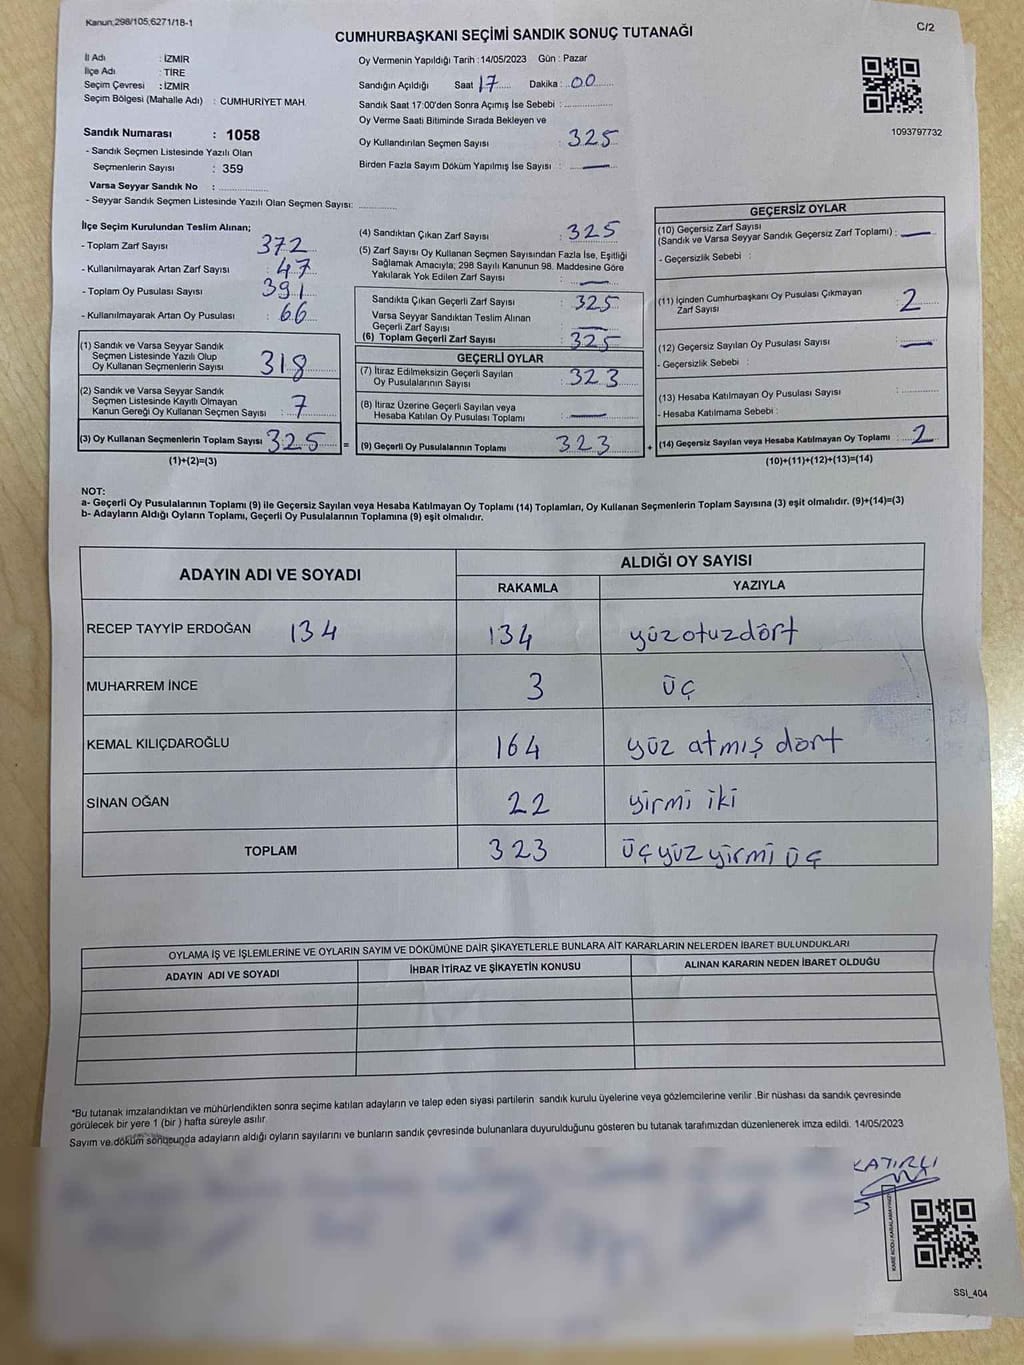 Kanun;298/105;6271/18-1
CUMHURBAŞKANI SEÇİMİ SANDIK SONUÇ TUTANAĞI
C/2
İl Adı : İZMİR
İlçe Adı : TİRE
Seçim Çevresi : İZMİR
Seçim Bölgesi (Mahalle Adı) : CUMHURİYET MAH.
Sandık Numarası : 1058
- Sandık Seçmen Listesinde Yazılı Olan
Seçmenlerin Sayısı : 359
Varsa Seyyar Sandık No :
- Seyyar Sandık Seçmen Listesinde Yazılı Olan Seçmen Sayısı:
Oy Vermenin Yapıldığı Tarih : 14/05/2023 Gün : Pazar
Sandığın Açıldığı Saat 17 Dakika : 00
Sandık Saat 17:00'den Sonra Açımış İse Sebebi :
Oy Verme Saati Bitiminde Sırada Bekleyen ve
Oy Kullandırılan Seçmen Sayısı : 325
Birden Fazla Sayım Döküm Yapılmış İse Sayısı : —
1093797732
İlçe Seçim Kurulundan Teslim Alınan;
- Toplam Zarf Sayısı : 372
- Kullanılmayarak Artan Zarf Sayısı : 47
- Toplam Oy Pusulası Sayısı : 391
- Kullanılmayarak Artan Oy Pusulası : 66
(1) Sandık ve Varsa Seyyar Sandık
Seçmen Listesinde Yazılı Olup
Oy Kullanan Seçmenlerin Sayısı : 318
(2) Sandık ve Varsa Seyyar Sandık
Seçmen Listesinde Kayıtlı Olmayan
Kanun Gereği Oy Kullanan Seçmen Sayısı : 7
(3) Oy Kullanan Seçmenlerin Toplam Sayısı : 325 =
(1)+(2)=(3)
(4) Sandıktan Çıkan Zarf Sayısı : 325
(5) Zarf Sayısı Oy Kullanan Seçmen Sayısından Fazla İse, Eşitliği
Sağlamak Amacıyla; 298 Sayılı Kanunun 98. Maddesine Göre
Yakılarak Yok Edilen Zarf Sayısı : —
Sandıkta Çıkan Geçerli Zarf Sayısı : 325
Varsa Seyyar Sandıktan Teslim Alınan
Geçerli Zarf Sayısı : —
(6) Toplam Geçerli Zarf Sayısı : 325
GEÇERLİ OYLAR
(7) İtiraz Edilmeksizin Geçerli Sayılan
Oy Pusulalarının Sayısı : 323
(8) İtiraz Üzerine Geçerli Sayılan veya
Hesaba Katılan Oy Pusulası Toplamı : —
(9) Geçerli Oy Pusulalarının Toplamı : 323 +
GEÇERSİZ OYLAR
(10) Geçersiz Zarf Sayısı
(Sandık ve Varsa Seyyar Sandık Geçersiz Zarf Toplamı) : —
- Geçersizlik Sebebi :
(11) İçinden Cumhurbaşkanı Oy Pusulası Çıkmayan
Zarf Sayısı : 2
(12) Geçersiz Sayılan Oy Pusulası Sayısı : —
- Geçersizlik Sebebi :
(13) Hesaba Katılmayan Oy Pusulası Sayısı :
- Hesaba Katılmama Sebebi :
(14) Geçersiz Sayılan veya Hesaba Katılmayan Oy Toplamı : 2
(10)+(11)+(12)+(13)=(14)
NOT:
a- Geçerli Oy Pusulalarının Toplamı (9) ile Geçersiz Sayılan veya Hesaba Katılmayan Oy Toplamı (14) Toplamları, Oy Kullanan Seçmenlerin Toplam Sayısına (3) eşit olmalıdır. (9)+(14)=(3)
b- Adayların Aldığı Oyların Toplamı, Geçerli Oy Pusulalarının Toplamına (9) eşit olmalıdır.
ADAYIN ADI VE SOYADI
ALDIĞI OY SAYISI
RAKAMLA YAZIYLA
RECEP TAYYİP ERDOĞAN 134 134 yüzotuzdört
MUHARREM İNCE 3 üç
KEMAL KILIÇDAROĞLU 164 yüz atmış dört
SİNAN OĞAN 22 yirmi iki
TOPLAM 323 üçyüz yirmi üç
OYLAMA İŞ VE İŞLEMLERİNE VE OYLARIN SAYIM VE DÖKÜMÜNE DAİR ŞİKAYETLERLE BUNLARA AİT KARARLARIN NELERDEN İBARET BULUNDUKLARI
ADAYIN ADI VE SOYADI İHBAR İTİRAZ VE ŞİKAYETİN KONUSU ALINAN KARARIN NEDEN İBARET OLDUĞU
*Bu tutanak imzalandıktan ve mühürlendikten sonra seçime katılan adayların ve talep eden siyasi partilerin sandık kurulu üyelerine veya gözlemcilerine verilir .Bir nüshası da sandık çevresinde
görülecek bir yere 1 (bir ) hafta süreyle asılır.
Sayım ve döküm sonucunda adayların aldığı oyların sayılarını ve bunların sandık çevresinde bulunanlara duyurulduğunu gösteren bu tutanak tarafımızdan düzenlenerek imza edildi. 14/05/2023
KATIRCI
KARE KODU KARALAMAYINIZ
SSI_404